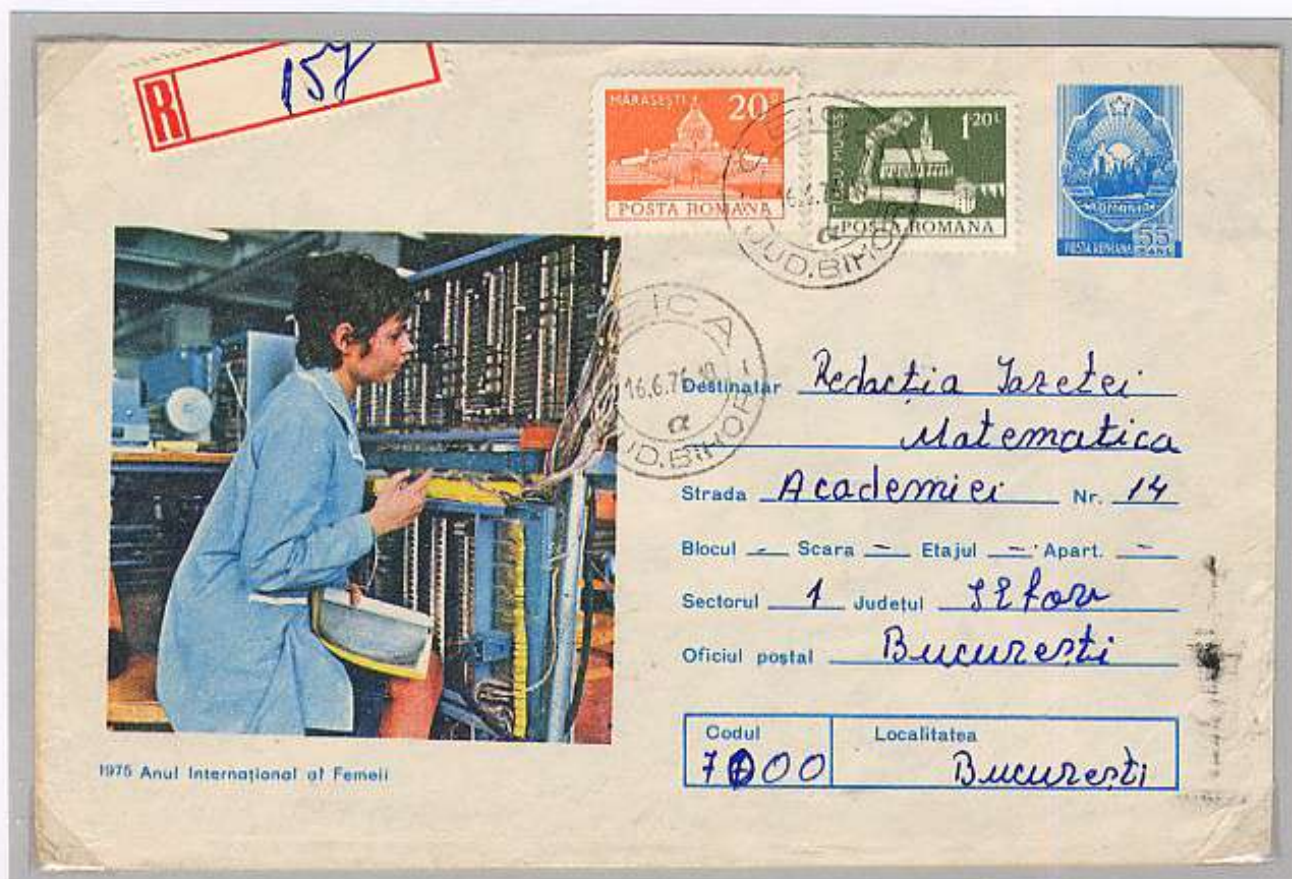 R 157
MĂRĂȘEȘTI 20B
POSTA ROMANA
1.20L
POSTA ROMANA
România
POSTA ROMANA 55 BANI
JUD. BIHOR
16.6.76.18
a
JUD. BIHOR
Destinatar Redacția Gazetei
Matematica
Strada Academiei Nr. 14
Blocul - Scara - Etajul - Apart. -
Sectorul 1 Județul Ilfov
Oficiul poștal București
Codul Localitatea
7000 București
1975 Anul Internațional al Femeii